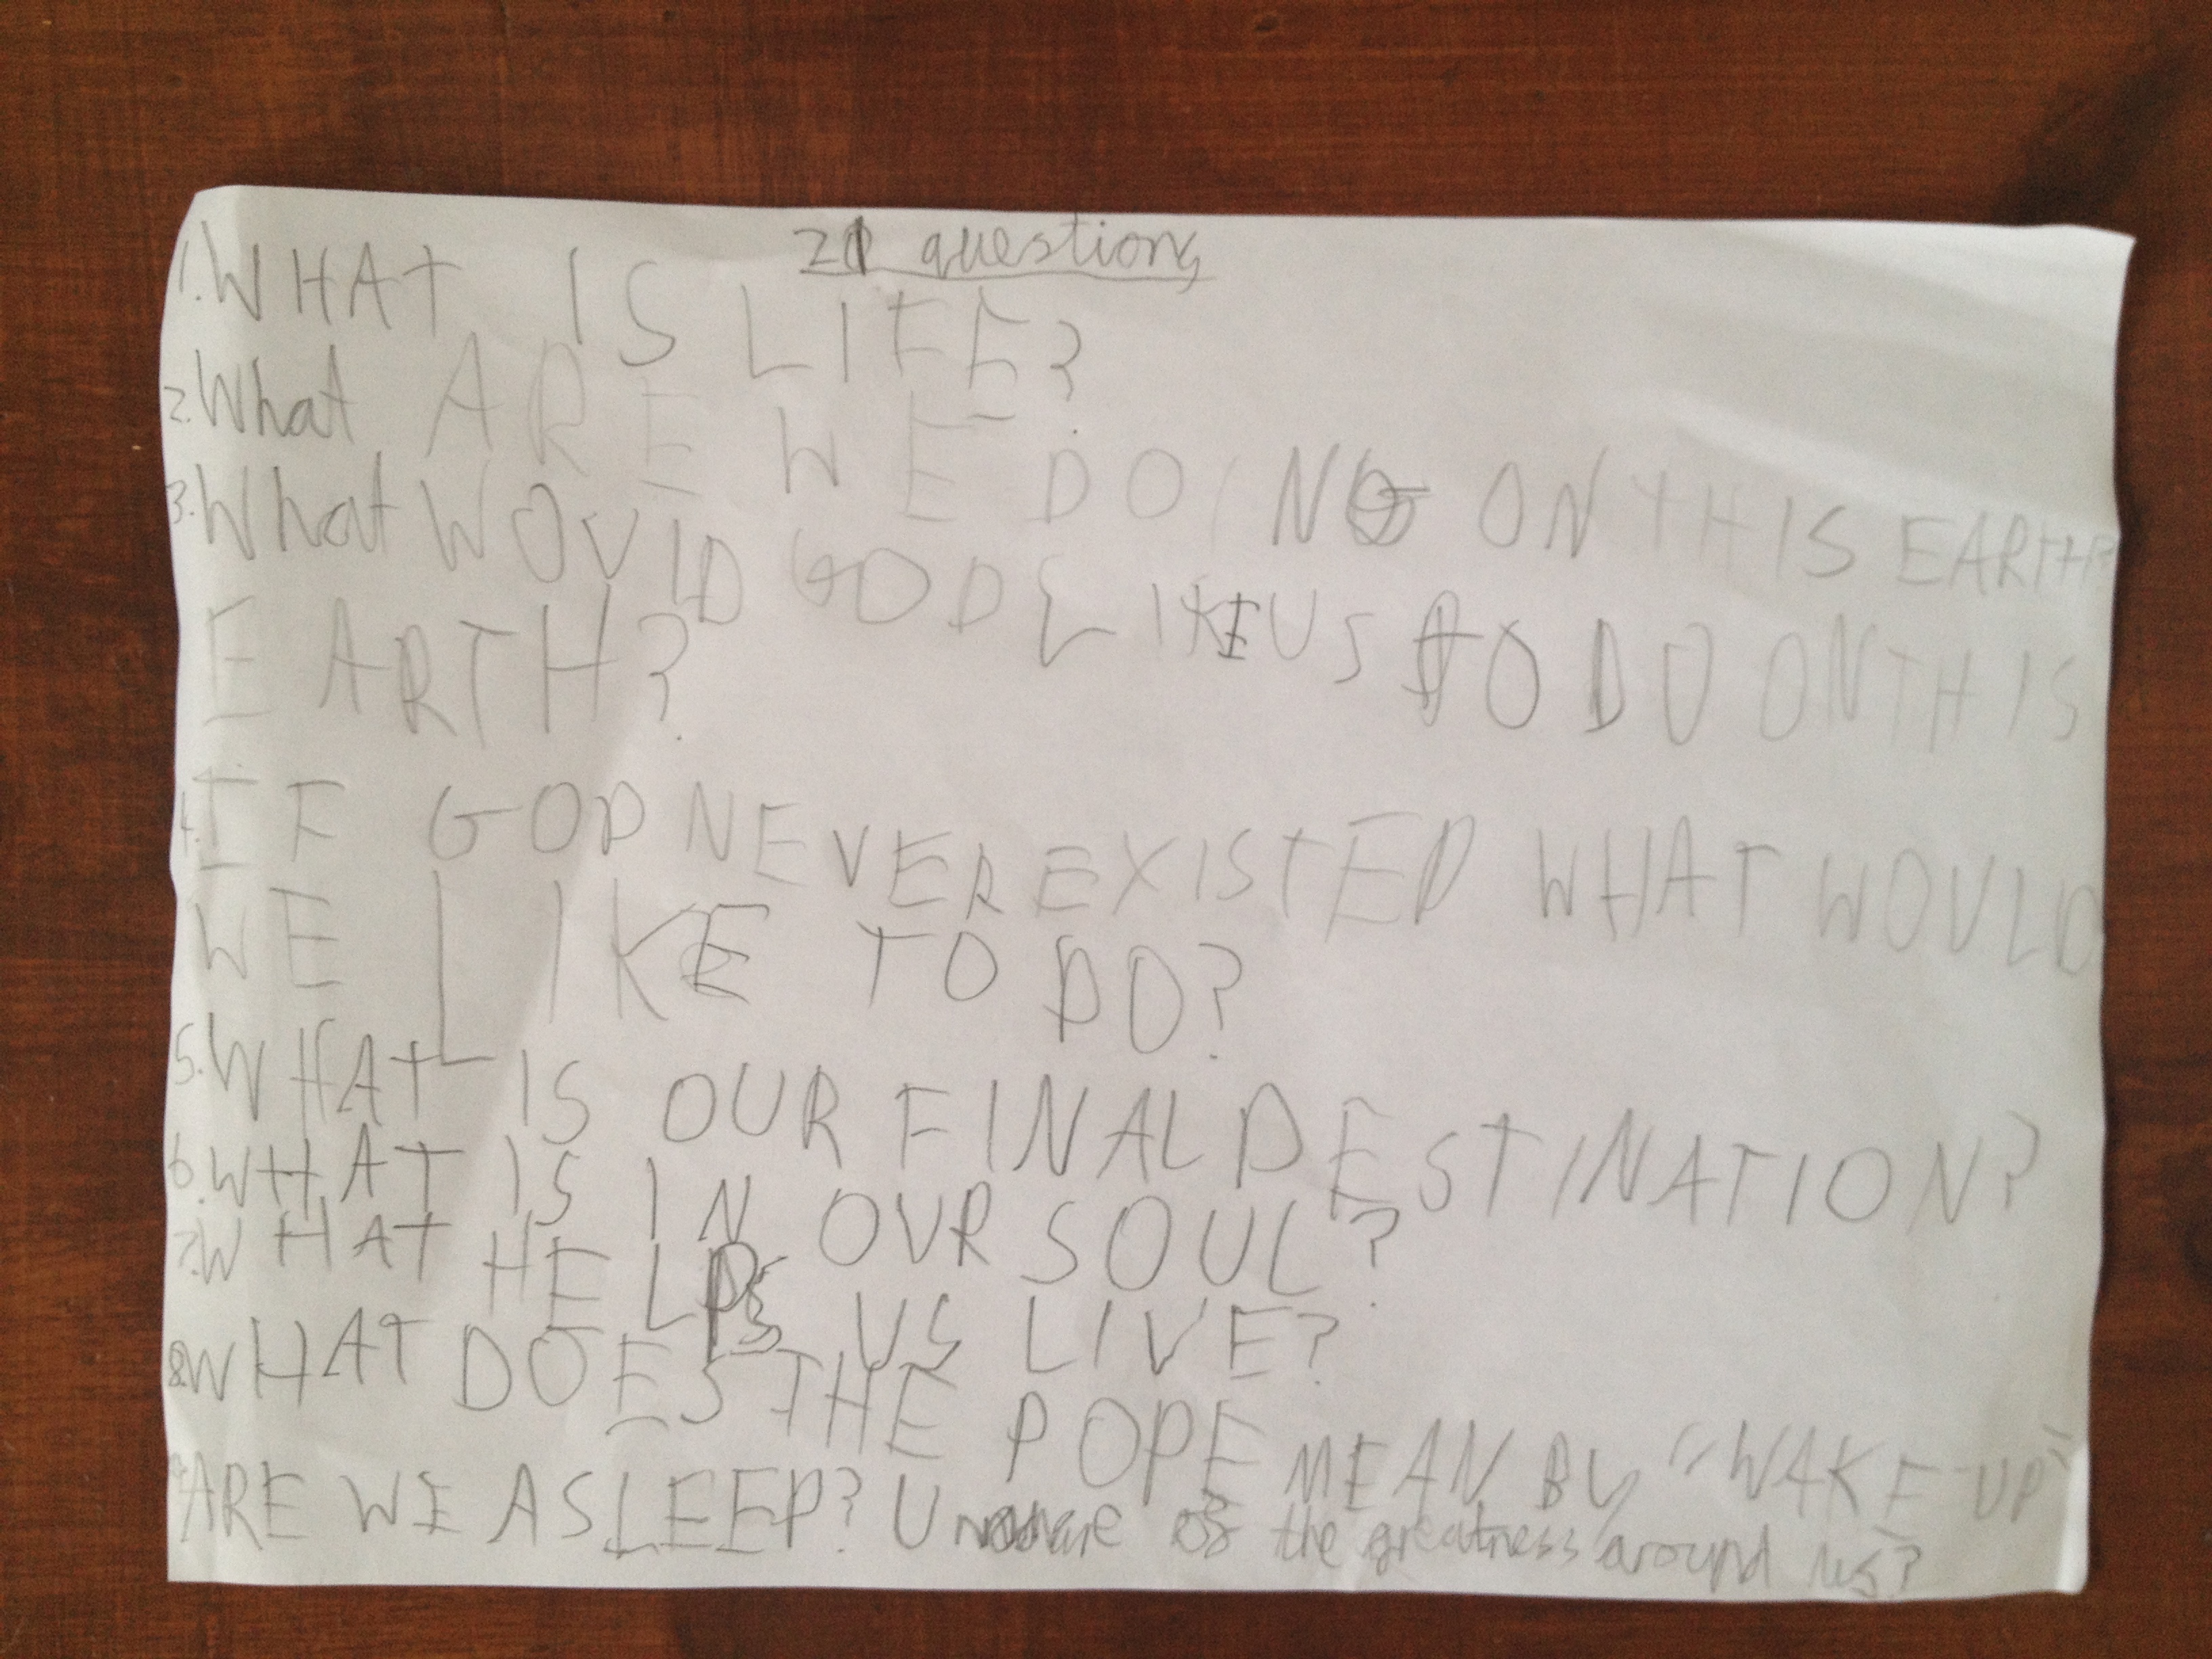 21 questions
1. WHAT IS LIFE?
2. What ARE WE DOING ON THIS EARTH?
3. What WOULD GOD LIKE US TO DO ON THIS
EARTH?
4. IF GOD NEVER EXISTED WHAT WOULD
WE LIKE TO DO?
5. WHAT IS OUR FINAL DESTINATION?
6. WHAT IS IN OUR SOUL?
7. WHAT HELPS US LIVE?
8. WHAT DOES THE POPE MEAN BY "WAKE-UP"
9. ARE WE ASLEEP? Unaware of the greatness around us?